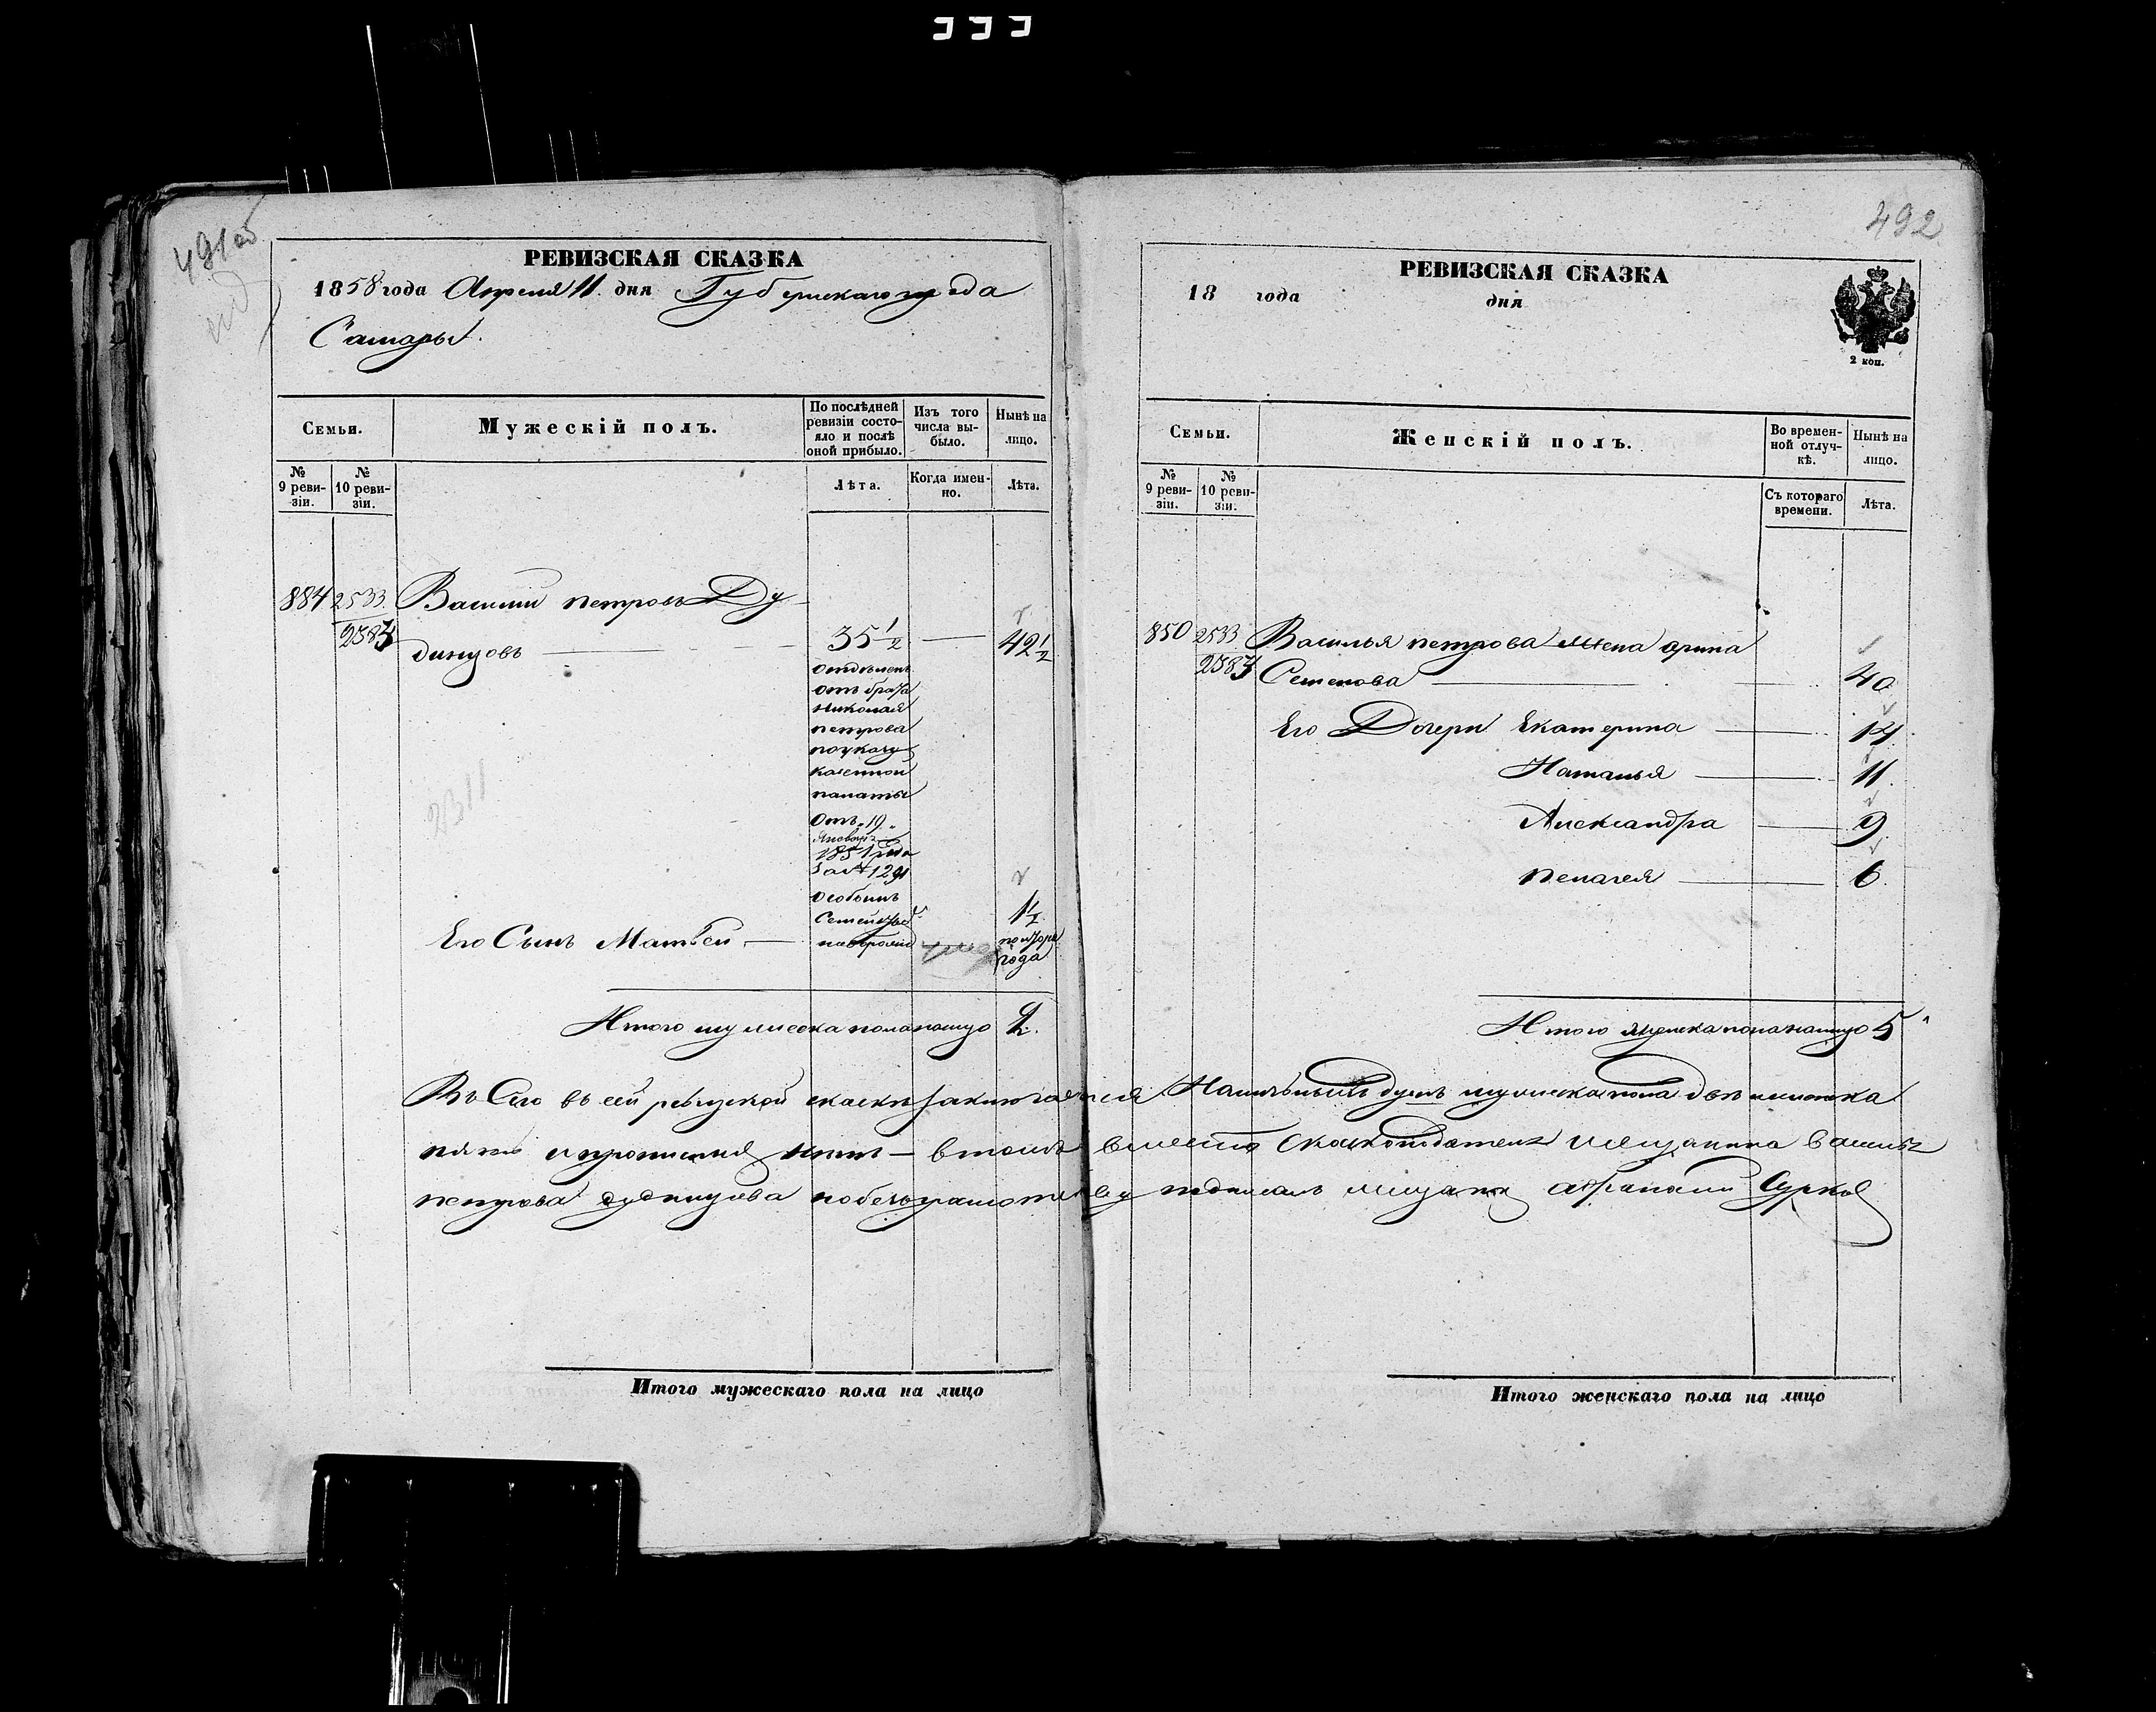 491об
РЕВИЗСКАЯ СКАЗКА
1858 года Апреля 11. дня Губернскаго города
Самары.
Семьи.
Мужескій полъ.
По послѣдней
ревизіи состо-
яло и послѣ
оной прибыло.
Изъ того
числа вы-
было.
Нынѣ на
лицо.
№
9 реви-
зіи.
№
10 реви-
зіи.
Лѣта.
Когда имен-
но.
Лѣта.
884 2533. Василий петровъ Ду
2383 динцовъ 35 1/2 42 1/2
отделенъ
отъ брата
николая
петрова
по указу
казенной
палаты
отъ 19
Январ
1851 года
за № 1291
особымъ
Семейство
Его Сынъ Матвей новорожд 1 1/2
полтора
года
2311
Итого мужеска пола налицо 2.
Итого мужескаго пола на лицо
492
РЕВИЗСКАЯ СКАЗКА
18 года дня
2 коп.
Семьи.
Женскій полъ.
Во времен-
ной отлуч-
кѣ.
Нынѣ на
лицо.
№
9 реви-
зіи.
№
10 реви-
зіи.
Съ котораго
времени.
Лѣта.
850 2533 Василья петрова жена арина
2383 Семенова 40
Его Дочери Екатерина 14
Наталья 11.
Александра 9
пелагея 6.
Итого женска пола налицо 5
Итого женскаго пола на лицо
въ сей ревизской скаске заключается Наличныхъ душъ мужеска пола две женска
пять и прописныя нетъ – в томъ вместо скаскоподателя мещанина василья
петрова дудинцова по безграмотству подписалъ мещанин афанасий Сурков